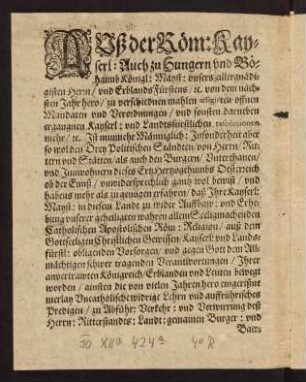 AUß der Röm: Kay-
serl: Auch zu Hungern vnd Bö-
haimb Königl: Mayst: vnsers allergnädi-
gisten Herrn / vnd Erblands Fürstens / rc. von dem näch-
sten Jahr hero / zu verschidnen mahlen offnen
Mandaten vnd Verordnungen / vnd sonsten darneben
ergangnen Kayserl: vnd Landtsfürstlichen resolutionen
mehr / rc. Ist nunmehr Männiglich: Jnsonderheit aber
so wol den Drey Politischen Ständten / von Herrn / Rit-
tern vnd Stätten / als auch den Burgern / Vnterthanen /
vnd Jnnwohnern dieses Ertzhertzogthumbs Oesterreich
ob der Ennß / vnwidersprechlich gantz wol bewißt / vnd
habens mehr als zu genügen erfahren / daß Jhre Kayserl:
Mayst: in diesem Landt zu wider Auffbaw: vnd Erhe-
bung vnserer geheiligten wahren allein Seeligmachenden
Catholischen Apostolischen Röm: Religion / auß dem
Gottseeligen Christlichen Gewissen / Kayserl: vnd Landts
fürstl: obligenden Vorsorgen / vnd gegen Gott dem All-
mächtigen schwer tragenden Verantwortungen / Jhrer
anvertrawten Königreich / Erblanden vnd Leuten bewegt
worden / ainsten die von vielen Jahren hero eingerißne
merlay Vncatholische widrige Lehrn vnd auffrührisches
Predigen / zu Abführ: Verkehr: vnd Verwirrung deß
Herrn: Ritterstandts: Landt: gemainen Burger: vnd
Baurs